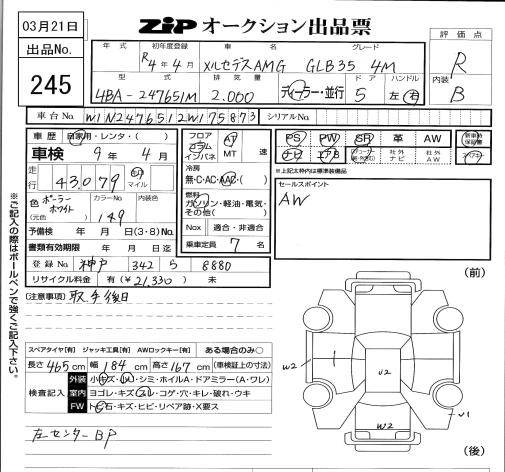 03月21日
出品No.
245
ZIP オークション出品票
評価点
R
内装
B
年式 初年度登録 車名 グレード
R4年4月 メルセデスAMG GLB35 4M
型式 排気量 ドア ハンドル
4BA-247651M 2.000 ディーラー・並行 5 左・右
車台No. W1N2476512W175873 シリアルNo.
車歴 自家用・レンタ・( )
車検 9年4月
走行 43079 km マイル
色 (元色) ポーラーホワイト カラーNo. 149 内装色
予備検 年 月 日(3・8)No.
書類有効期限 年 月 日迄
登録No. 神戸 342 ら 8880
リサイクル料金 有(¥21,330) 未
フロア コラム インパネ
AT MT 速
冷房
無・C・AC・AAC・( )
燃料
ガソリン・軽油・電気・その他( )
Nox 適合・非適合
乗車定員 7 名
PS PW SR 革 AW 新車時保証書
ナビ エアB 社外ナビ 社外AW
*上記太枠内は標準装備品
セールスポイント
AW
※ご記入の際はボールペンで強くご記入下さい。
[注意事項] 取手後日
スペアタイヤ[有] ジャッキ工具[有] AWロックキー[有] ある場合のみ○
長さ465cm 幅184cm 高さ167cm (車検証上の寸法)
検査記入
外装 小キズ・凹・シミ・ホイルA・ドアミラー(A・ワレ)
室内 ヨゴレ・キズ・スレ・コゲ・穴・キレ・破れ・ウキ
FW トビ石・キズ・ヒビ・リペア跡・X要ス
左センターBP
(前)
W2
1
V2
W2
V1
(後)